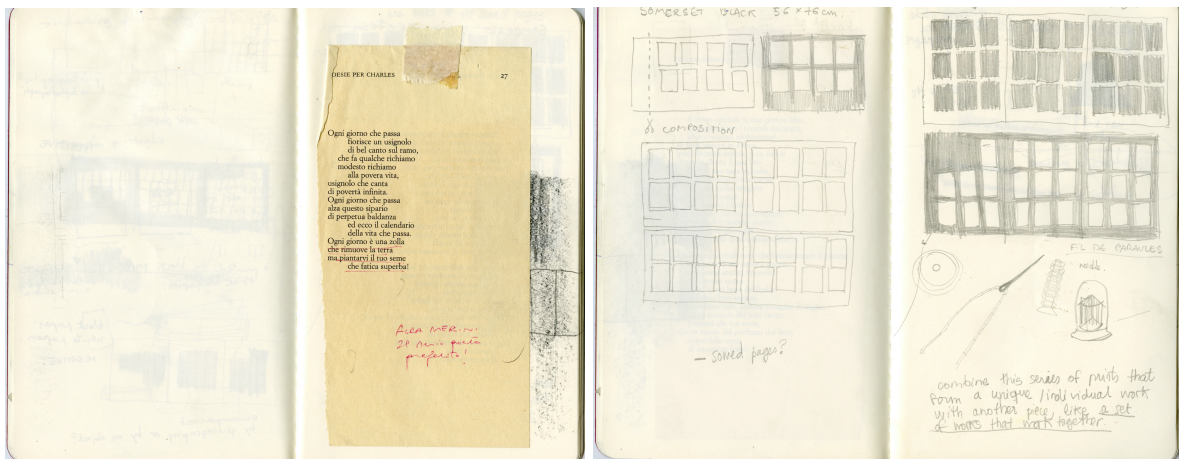 OESIE PER CHARLES 27
Ogni giorno che passa
fiorisce un usignolo
di bel canto sul ramo,
che fa qualche richiamo
modesto richiamo
alla povera vita,
usignolo che canta
di povertà infinita.
Ogni giorno che passa
alza questo sipario
di perpetua baldanza
ed ecco il calendario
della vita che passa.
Ogni giorno è una zolla
che rimuove la terra
ma piantarvi il tuo seme
che fatica superba!
ALDA MERINI
preferito!
SOMERSET BLACK 56 x 76 cm.
COMPOSITION
– sowed pages?
FIL DE PARAULES
needle.
combine this series of prints that
form a unique / individual work
with another piece, like a set
of works that work together.